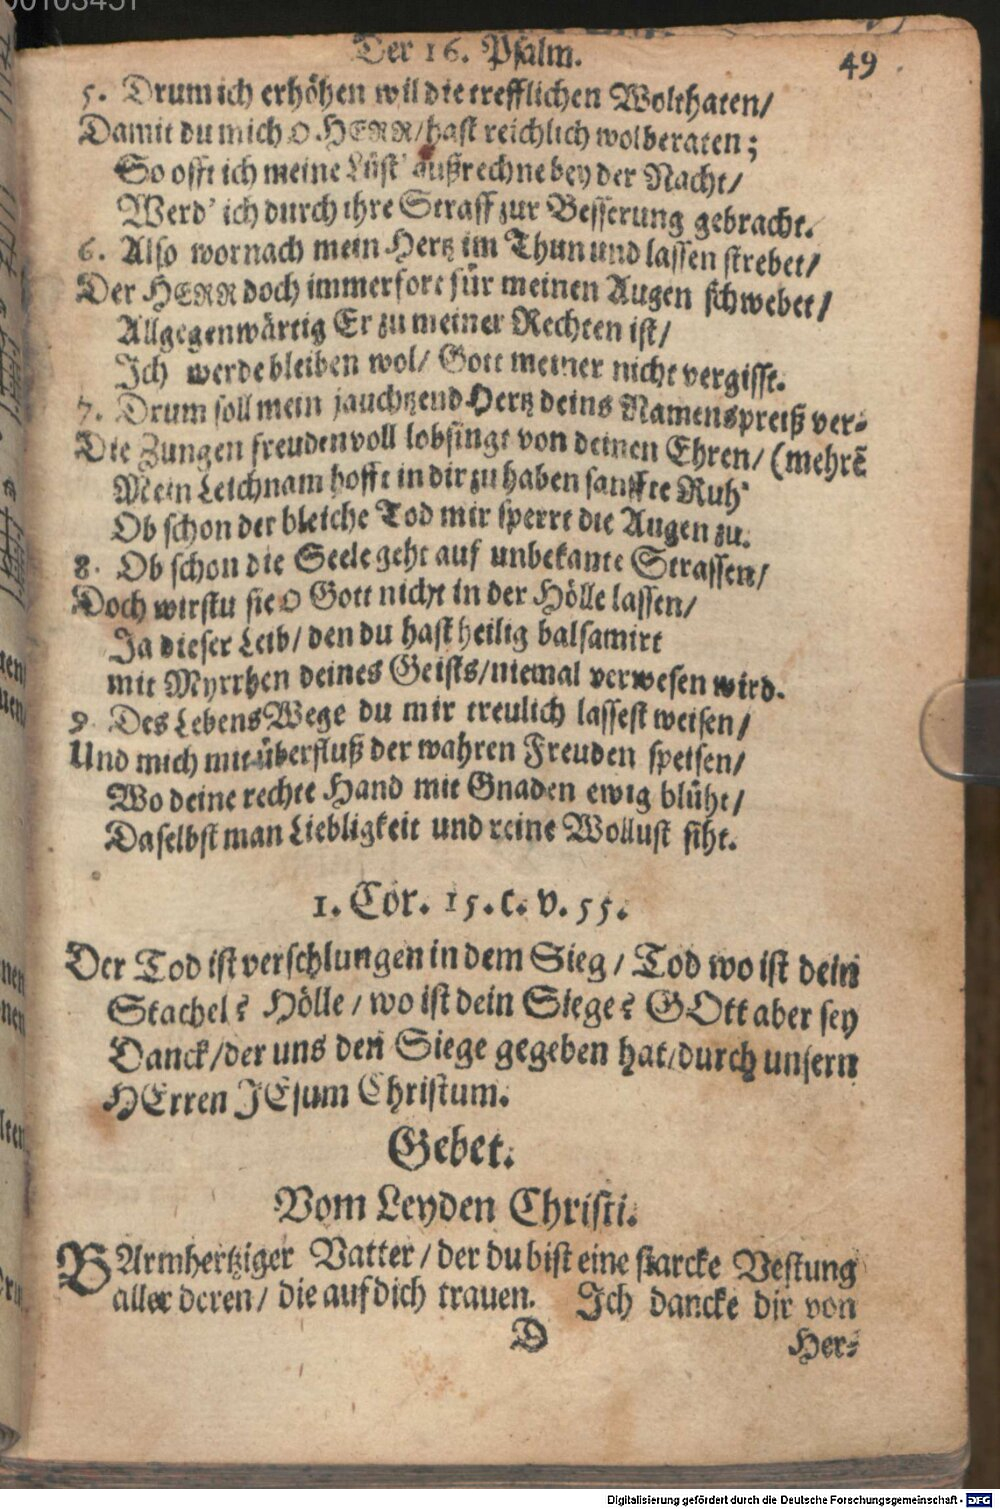 00103451
Der 16. Psalm. 49
5. Drum ich erhöhen wil die trefflichen Wolthaten/
Damit du mich O HERR/hast reichlich wolberaten;
So offt ich meine Lüst' außrechne bey der Nacht/
Werd' ich durch ihre Straff zur Besserung gebracht.
6. Also wornach mein Hertz im Thun und lassen strebet/
Der HERR doch immerfort für meinen Augen schwebet/
Allgegenwärtig Er zu meiner Rechten ist/
Ich werde bleiben wol/ Gott meiner nicht vergisst.
7. Drum soll mein jauchtzend Hertz deins Namens preiß ver-
Die Zungen freudenvoll lobsingt von deinen Ehren/ (mehrẽ
Mein Leichnam hofft in dir zu haben sanffte Ruh'
Ob schon der bleiche Tod mir sperrt die Augen zu.
8. Ob schon die Seele geht auf unbekante Strassen/
Doch wirstu sie O Gott nicht in der Hölle lassen/
Ja dieser Leib/ den du hast heilig balsamirt
mit Myrrhen deines Geists/niemal verwesen wird.
9. Des Lebens Wege du mir treulich lassest weisen/
Und mich mit überfluß der wahren Freuden speisen/
Wo deine rechte Hand mit Gnaden ewig blüht/
Daselbst man Liebligkeit und reine Wollust siht.
1. Cor. 15. c. v. 55.
Der Tod ist verschlungen in dem Sieg/ Tod wo ist dein
Stachel? Hölle/ wo ist dein Siege? GOtt aber sey
Danck/der uns den Siege gegeben hat/durch unsern
HErren JEsum Christum.
Gebet.
Vom Leyden Christi.
BArmhertziger Vatter/ der du bist eine starcke Vestung
aller deren/ die auf dich trauen. Ich dancke dir von
D Her-
Digitalisierung gefördert durch die Deutsche Forschungsgemeinschaft - DFG